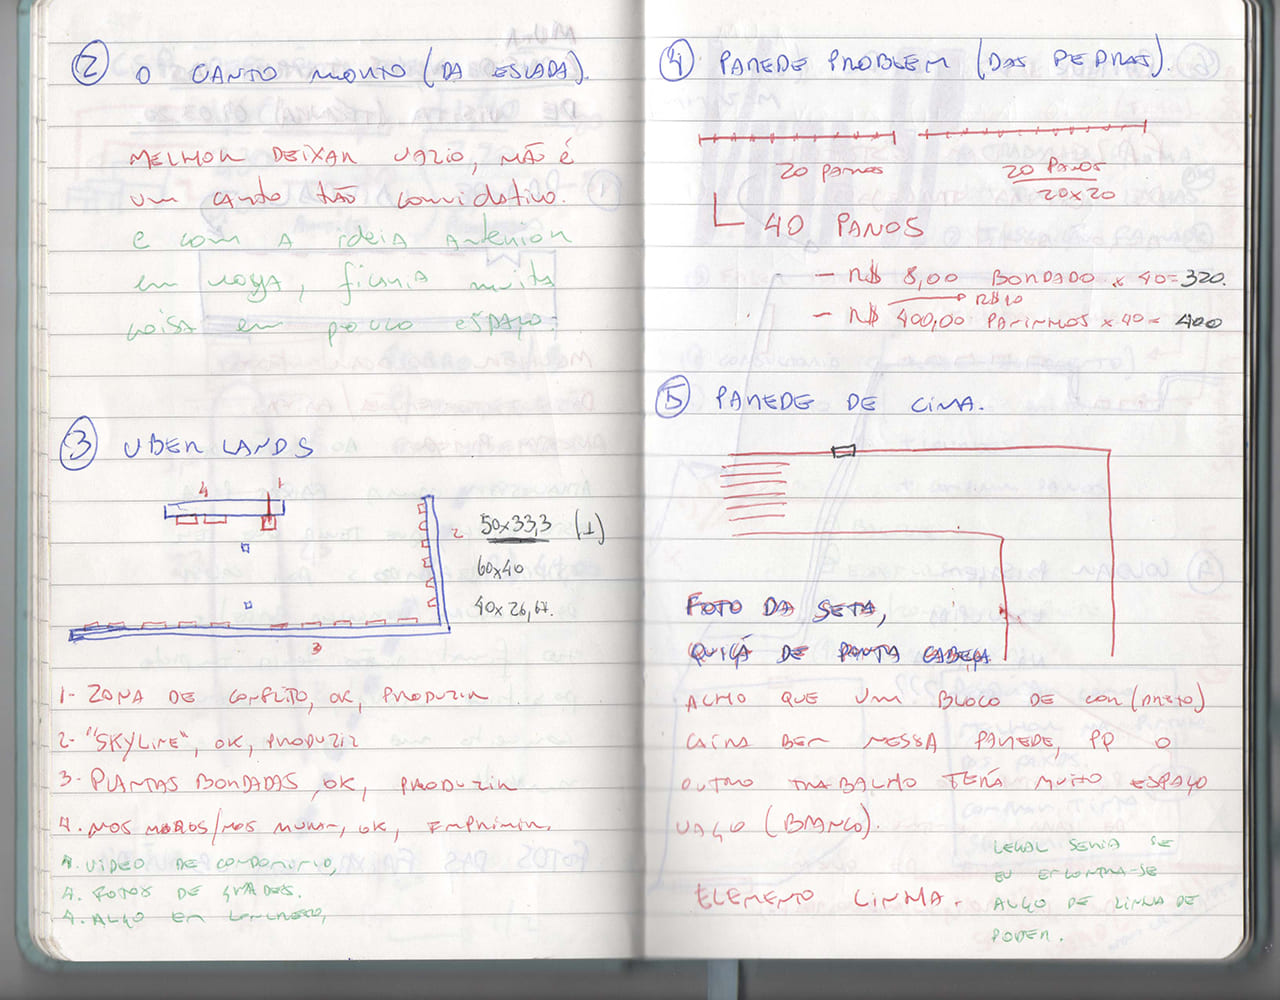 2 O CANTO MORTO (DA ESCADA).
MELHOR DEIXAR VAZIO, NÃO É
UM CANTO TÃO CONVIDATIVO.
E COM A IDEIA ANTERIOR
EM VOGA, FICARIA MUITA
COISA EM POUCO ESPAÇO.
3 UBER LANDS
4 1
2 50x33,3 (1)
60x40
40x26,67.
3
1- ZONA DE CONFLITO, OK, PRODUZIR
2- "SKYLINE", OK, PRODUZIR
3- PLANTAS BORDADAS, OK, PRODUZIR
4. NOS MOROS/NOS MURAM, OK, IMPRIMIR.
4. VIDEO DE CONDOMINIO,
4. FOTOS DE GRADES.
4. ALGO EM
4 PAREDE PROBLEM (DAS PEDRAS).
20 PANOS 20 PANOS
20x20
40 PANOS
- R$ 8,00 BORDADO x 40= 320.
R$10
- R$ 400,00 PANINHOS x 40= 400
5 PAREDE DE CIMA.
FOTO DA SETA,
QUIÇÁ DE PONTA CABEÇA
ACHO QUE UM BLOCO DE COR (PRETO)
CAIRA BEM NESSA PAREDE, PP O
OUTRO TRABALHO TERÁ MUITO ESPAÇO
VAGO (BRANCO).
LEGAL SERIA SE
EU ENCONTRA-SE
ELEMENTO LINHA. ALGO DE LINHA DE
PODER.